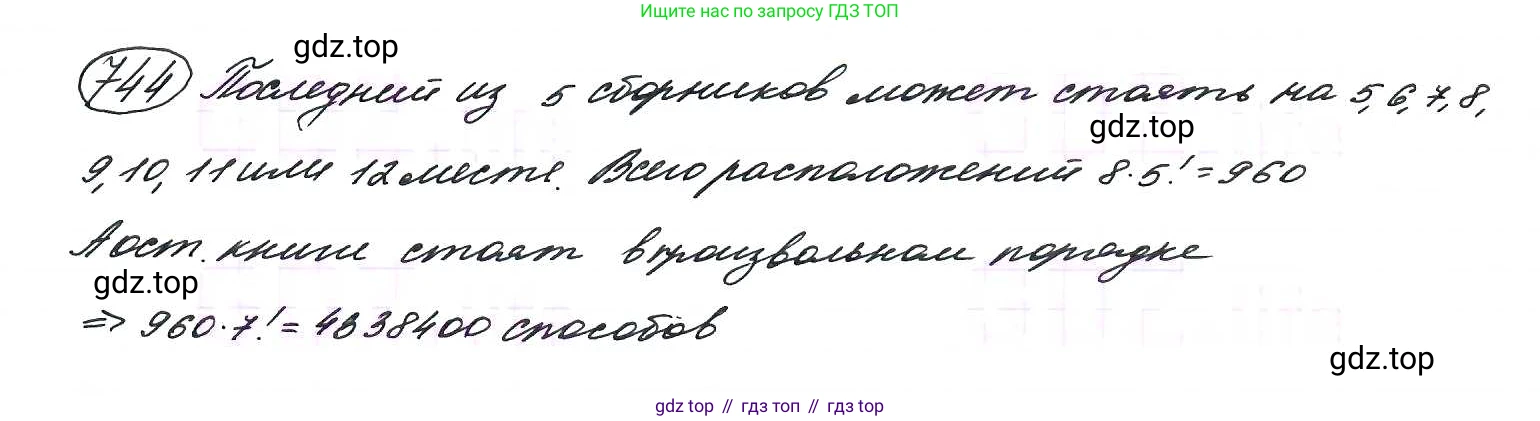 Ищите нас по запросу ГДЗ ТОП
gdz.top
744 Последний из 5 сборников может стоять на 5, 6, 7, 8,
gdz.top
9, 10, 11 или 12 месте. Всего расположений 8·5! = 960
А ост. книги стоят в произвольном порядке
gdz.top
=> 960·7! = 4838400 способов
gdz.top
gdz top // гдз топ // gdz top